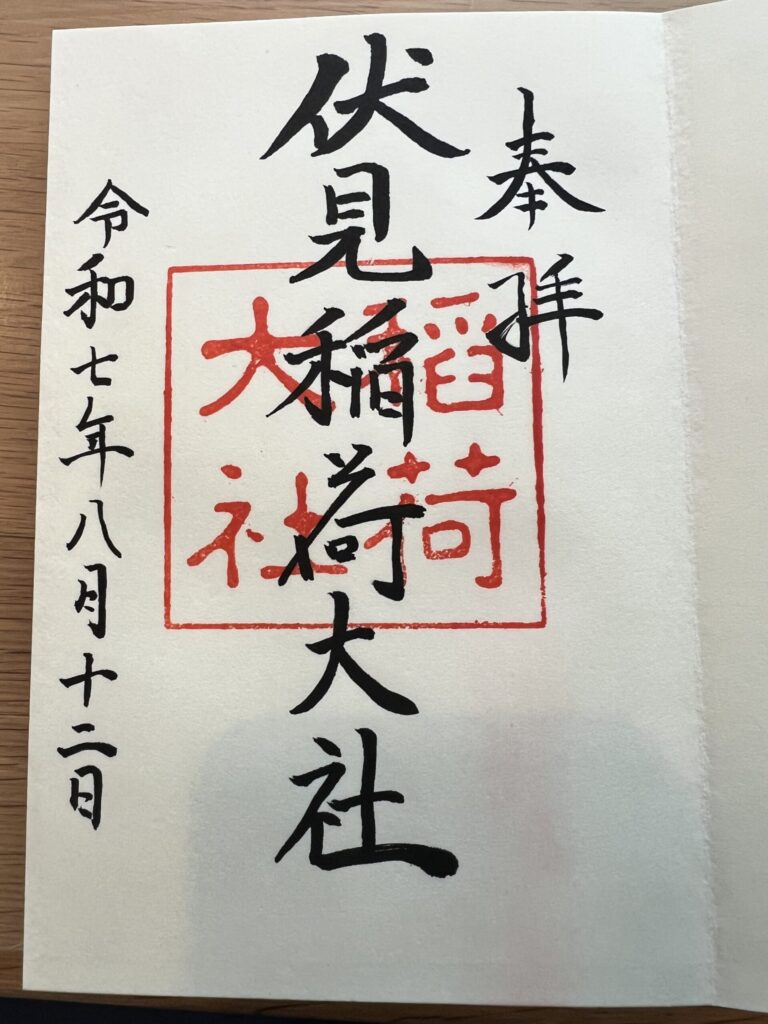 奉拝
伏見稲荷大社
稲荷
大社
令和七年八月十二日